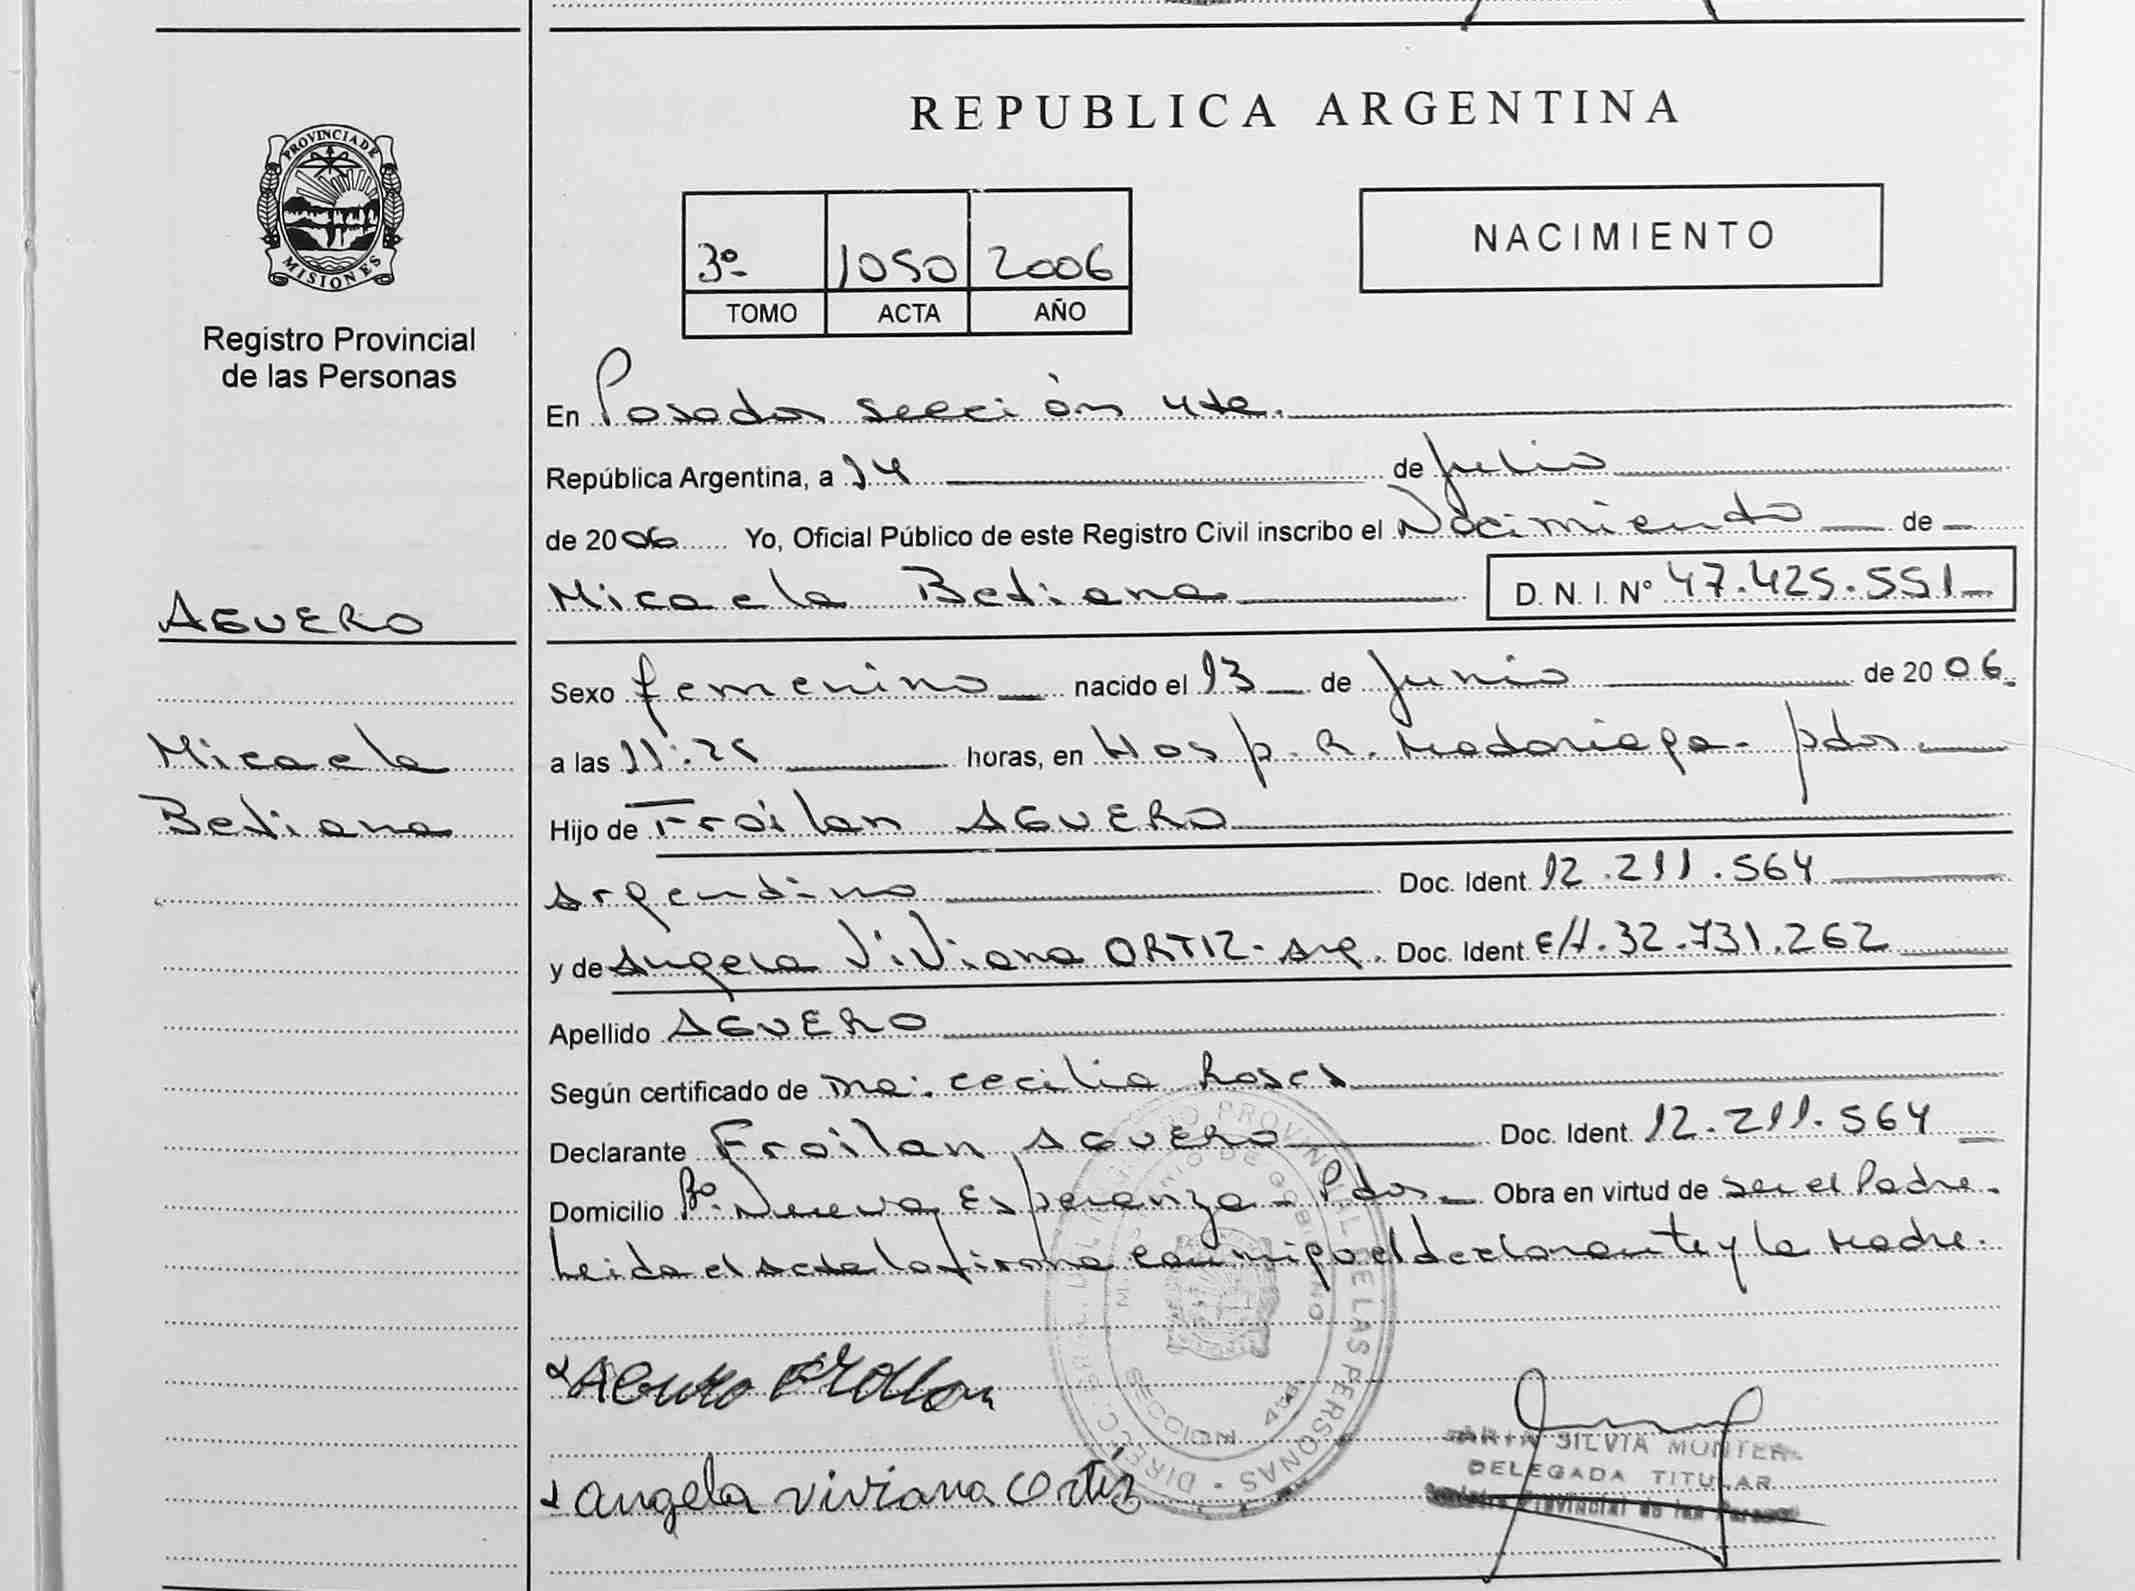 REPUBLICA ARGENTINA
PROVINCIA DE MISIONES
Registro Provincial
de las Personas
NACIMIENTO
3º 1050 2006
TOMO ACTA AÑO
En Posadas sección 4ta.
República Argentina, a 14 de Julio
de 2006 Yo, Oficial Público de este Registro Civil inscribo el Nacimiento de
Micaela Betiana D. N. I. Nº 47.425.551
AGUERO
Sexo femenino nacido el 13 de Junio de 2006.
Micaela
Betiana
a las 11:25 horas, en Hosp. R. Madariaga - Pdas
Hijo de Froilan AGUERO
Argentino Doc. Ident. 12.211.564
y de Angela Viviana ORTIZ - Arg. Doc. Ident. E/t. 32.731.262
Apellido AGUERO
Según certificado de Ma. Cecilia Roses
Declarante Froilan AGUERO Doc. Ident. 12.211.564
Domicilio Bº. Nueva Esperanza - Pdas. Obra en virtud de ser el Padre.
Leida el Acta la firma conmigo el declarante y la Madre.
Aguero Froilan
angela viviana Ortiz
DIRECC. GRAL. DEL REGISTRO PROVINCIAL DE LAS PERSONAS
MINISTERIO DE GOBIERNO
SECCION 4ta
SILVIA
DELEGADA TITULAR
Registro Provincial de las Personas